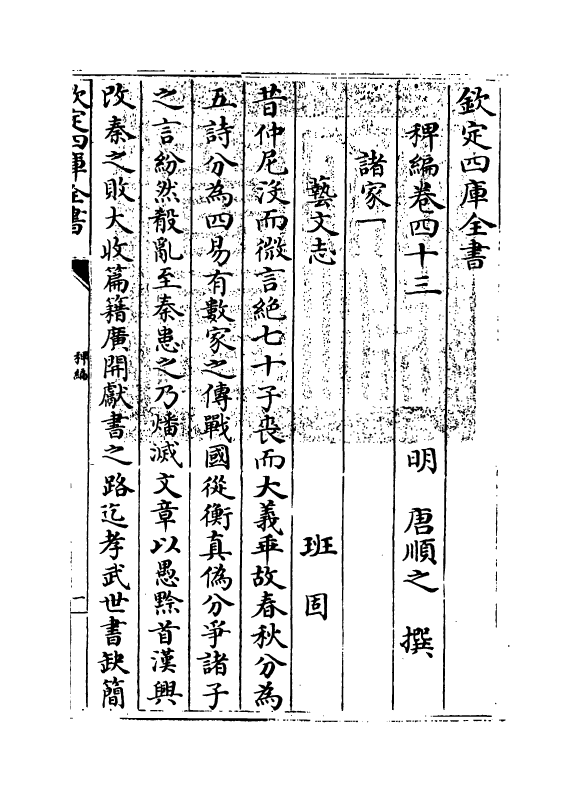 欽定四庫全書
稗編卷四十三 明 唐順之 撰
諸家一
藝文志 班固
昔仲尼沒而微言絕七十子喪而大義乖故春秋分為
五詩分為四易有數家之傳戰國從衡真偽分爭諸子
之言紛然殽亂至秦患之乃燔滅文章以愚黔首漢興
改秦之敗大收篇籍廣開獻書之路迄孝武世書缺簡
欽定四庫全書
稗編
一